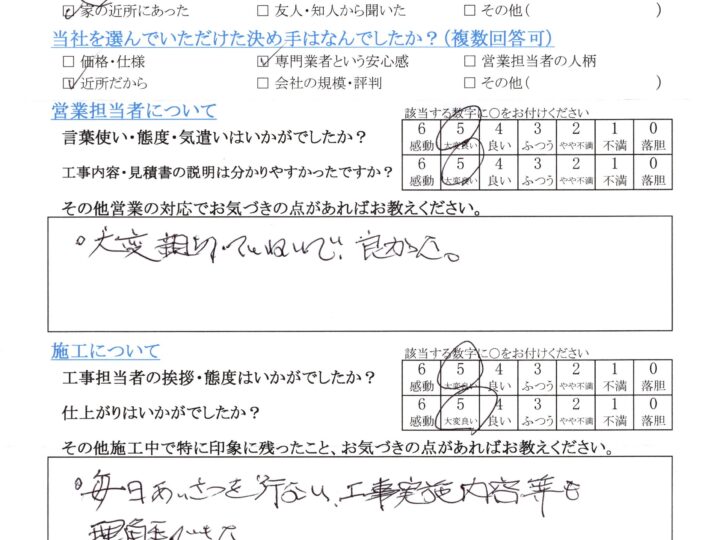 ☑ 家の近所にあった □ 友人・知人から聞いた □ その他( )
当社を選んでいただけた決め手はなんでしたか？(複数回答可)
□ 価格・仕様 ☑ 専門業者という安心感 □ 営業担当者の人柄
☑ 近所だから □ 会社の規模・評判 □ その他( )
営業担当者について 該当する数字に○をお付けください
言葉使い・態度・気遣いはいかがでしたか？
6 5 4 3 2 1 0
感動 大変良い 良い ふつう やや不満 不満 落胆
工事内容・見積書の説明は分かりやすかったですか？
6 5 4 3 2 1 0
感動 大変良い 良い ふつう やや不満 不満 落胆
その他営業の対応でお気づきの点があればお教えください。
○大変親切、ていねいで、良かった。
施工について 該当する数字に○をお付けください
工事担当者の挨拶・態度はいかがでしたか？
6 5 4 3 2 1 0
感動 大変良い 良い ふつう やや不満 不満 落胆
仕上がりはいかがでしたか？
6 5 4 3 2 1 0
感動 大変良い 良い ふつう やや不満 不満 落胆
その他施工中で特に印象に残ったこと、お気づきの点があればお教えください。
○毎日あいさつを行ない、工事実施内容等も
理解できた